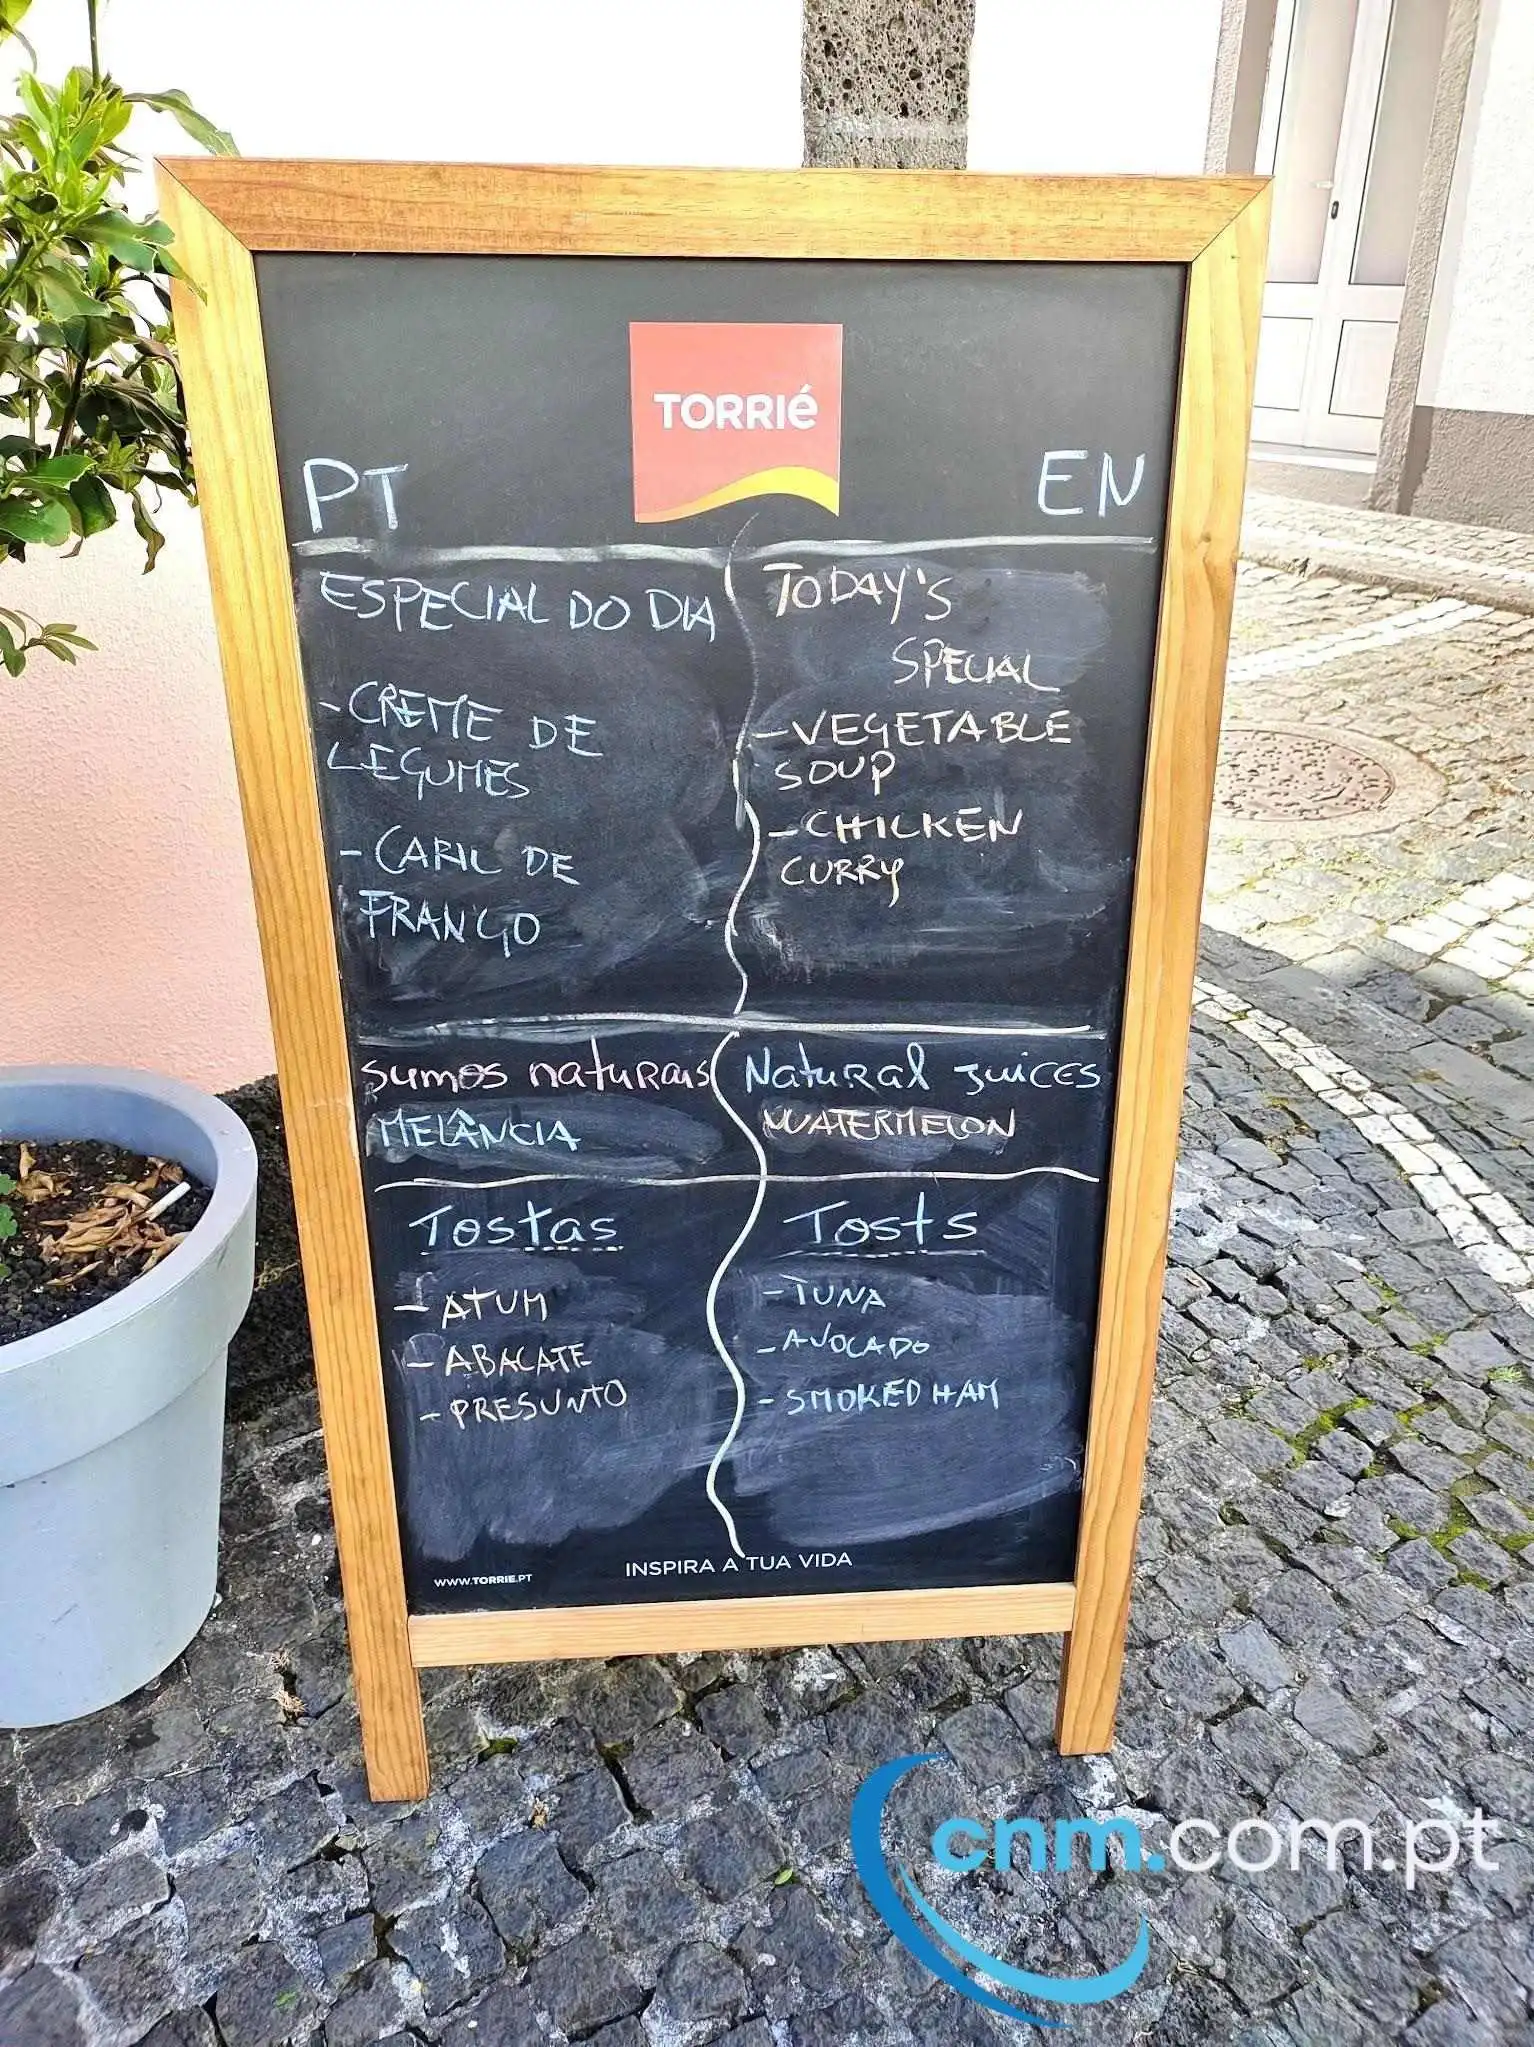 TORRIé
PT
EN
ESPECIAL DO DIA
- CREME DE
LEGUMES
- CARIL DE
FRANGO
TODAY'S
SPECIAL
- VEGETABLE
SOUP
- CHICKEN
CURRY
sumos naturais
MELÂNCIA
Natural juices
WATERMELON
Tostas
- ATUM
- ABACATE
- PRESUNTO
Tosts
- TUNA
- AVOCADO
- SMOKED HAM
INSPIRA A TUA VIDA
WWW.TORRIE.PT
cnm.com.pt